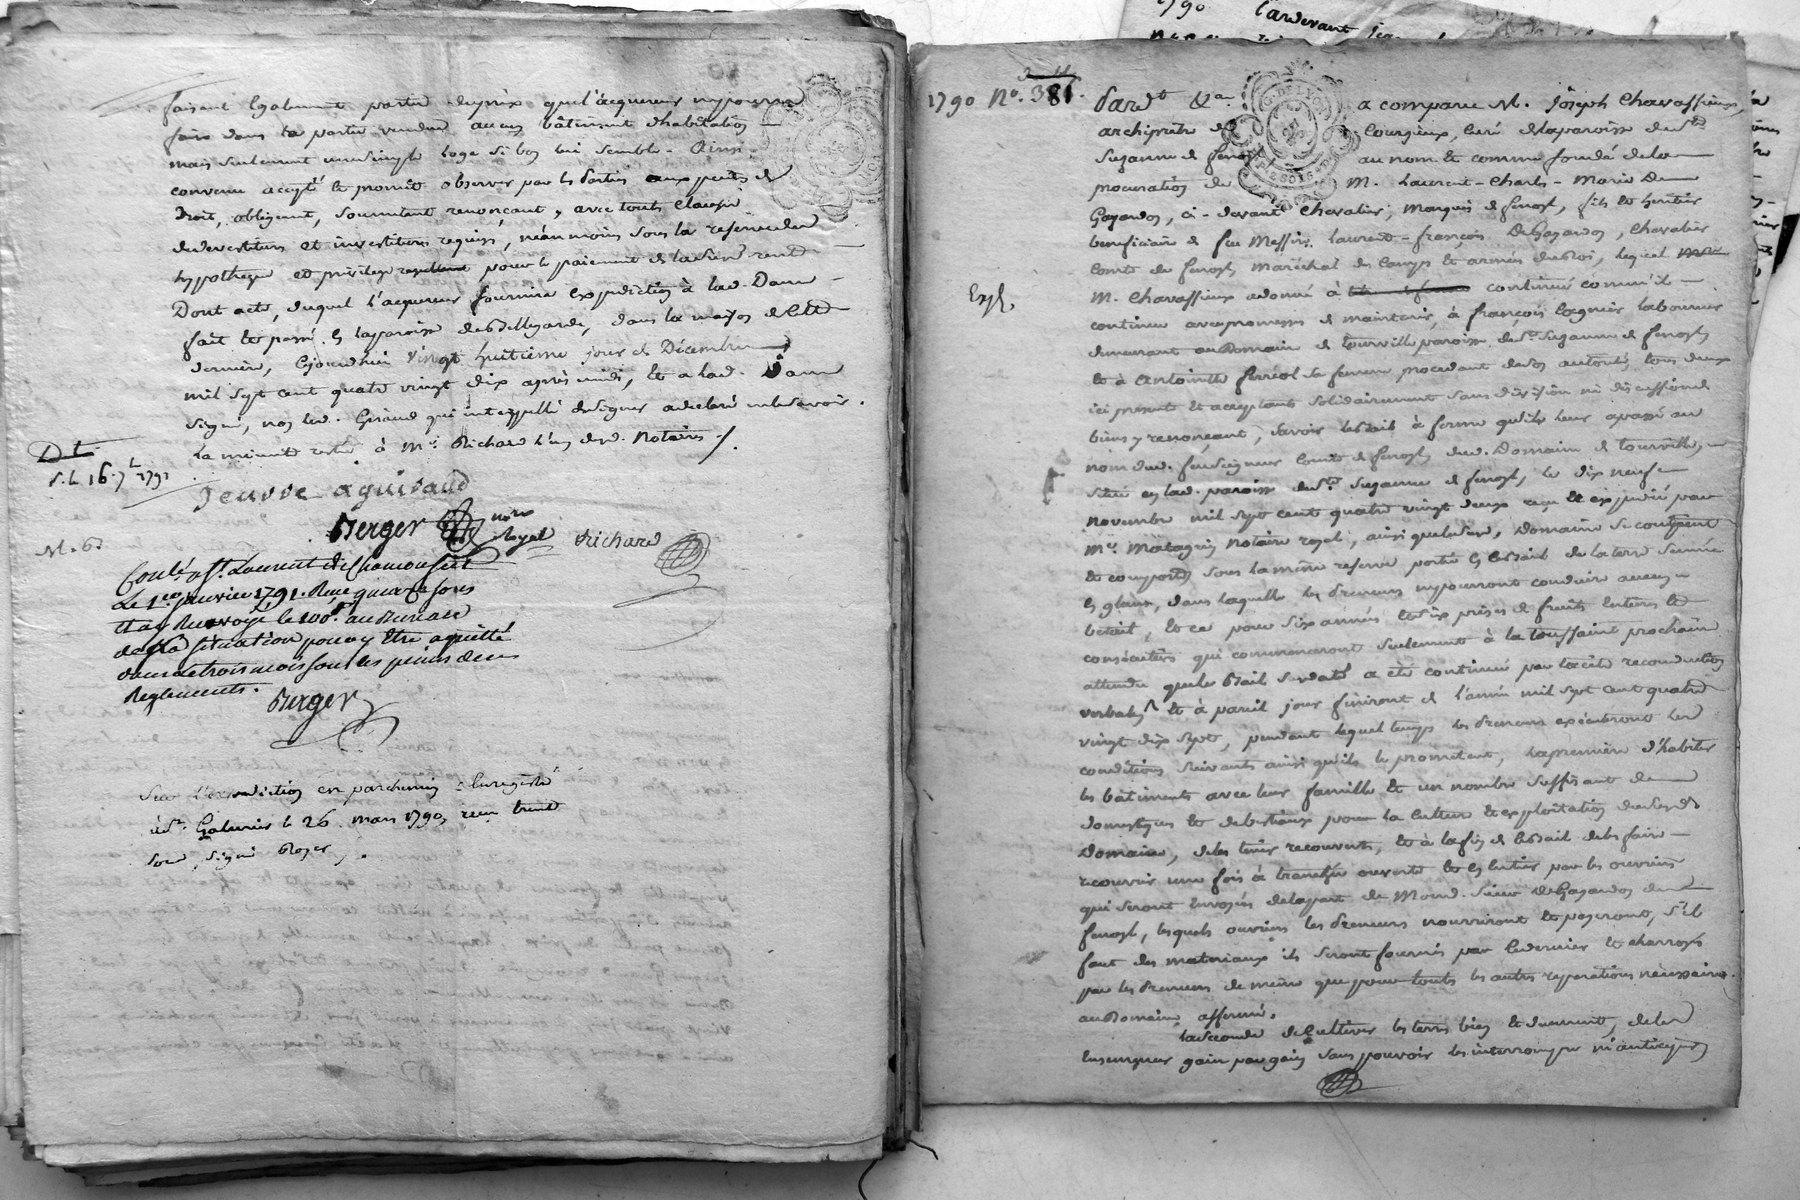 faisant Egalement partie du prix que l'acquereur ne pourra
faire dans la partie vendue aucun bâtiment d'habitation
mais seulement une simple loge si bon lui semble. Ainsi
convenu accepté et promis observer par les parties aux peines de
Droit, obligeant, soumettant renonçant, avec toutes clauses
de devestiture et investiture requises, néanmoins sous la reserve de
hypotheque et privilege pour le paiement de ladite rente
Dont acte, duquel l'acquereur fournira Expedition à lad. Dame
fait et passé En la paroisse de Bellegarde, dans la maison de cette
derniere, Cejourdhui vingt huitieme jour de Décembre
mil sept cent quatre vingt dix après midi, et a lad. Dame
signé, non led. Giraud qui interpellé de signer a declaré ne le savoir.
La minute restée à Me. Richard l'un desd. Notaires ./.
Dt
S. L. 16. 7
1791
jeuvre aguiraud
Berger nore Royal Richard
M. 6
Conlé. a St. Laurent de Chamousset
Le 1er janvier 1791. Reçu quinze sous
et ay Renvoyé le 100e. au Bureau
de la situation pour y Etre aquitté
dans de trois mois sous les peines des
Reglements.
Berger
Sur l'expedition en parchemin : Enregistré
à St. Galmier le 26 mars 1790, reçu trente
sous signé Roger ./.
1790 No. 381.
Pardt. &a. a comparu M. Joseph Chavassieux,
archiprêtre de Courzieux, curé de la paroisse de Ste
Suzanne de fenost au nom et comme fondé de la
procuration de M. Laurent-Charles-Marie De
Gayardon, ci-devant Chevalier, Marquis de fenost, fils et heritier
beneficiaire de feu Messire Laurent-françois De Gayardon, Chevalier
Comte de fenost, maréchal des Camps et armées du Roi, lequel
Expd.
M. Chavassieux a donné à continué comme il
continue avec promesse de maintenir, à françois Cognier laboureur
demeurant au Domaine de tourville paroisse de Ste. Suzanne de fenost
et à Antoinette ferréol sa femme procedant de son autorité, tous deux
ici presents et acceptants solidairement sans division ni discussion de
biens y renonçant, savoir le Bail à ferme qu'il leur a passé au
nom dud. feu seigneur Comte de fenost dud. Domaine de tourville,
situé en lad. paroisse de Ste. Suzanne de fenost, le dix neuf
Novembre mil sept cent quatre vingt deux reçu et expedié par
Me. Matagrin Notaire royal, ainsi que led. Domaine se contient
et comporte, sous la même reserve portée En le Bail de la terre semée
En glans, dans laquelle les preneurs ne pourront conduire aucun
betail, et ce pour six années et six prises de fruits Entieres et
consécutives qui commenceront seulement à la toussaint prochaine
attendu que le Bail susdaté a été continué par tacite reconduction
verbale, et à pareil jour finiront de l'année mil sept cent quatre
vingt dix sept, pendant lequel temps les preneurs exécuteront les
conditions suivantes ainsi qu'ils le promettent, la premiere d'habiter
les bâtiments avec leur famille et un nombre suffisant de
domestiques et de bestiaux pour la culture et exploitation dud.
Domaine, de les tenir recouverts, et à la fin de le Bail de les faire
recouvrir une fois à tranchée ouverte et En entier par les ouvriers
qui seront Envoyés de la part de Mond. Sieur De Gayardon de
fenost, lesquels ouvriers les preneurs nourriront et payeront, s'il
faut des materiaux ils seront fournis par ce dernier et charroyés
par les preneurs de même que pour toutes les autres reparations necessaires
au Domaine affermé.
La seconde de Cultiver les terres bien et duement, de les
Ensemencer gain par gain sans pouvoir les interrompre ni anticiper